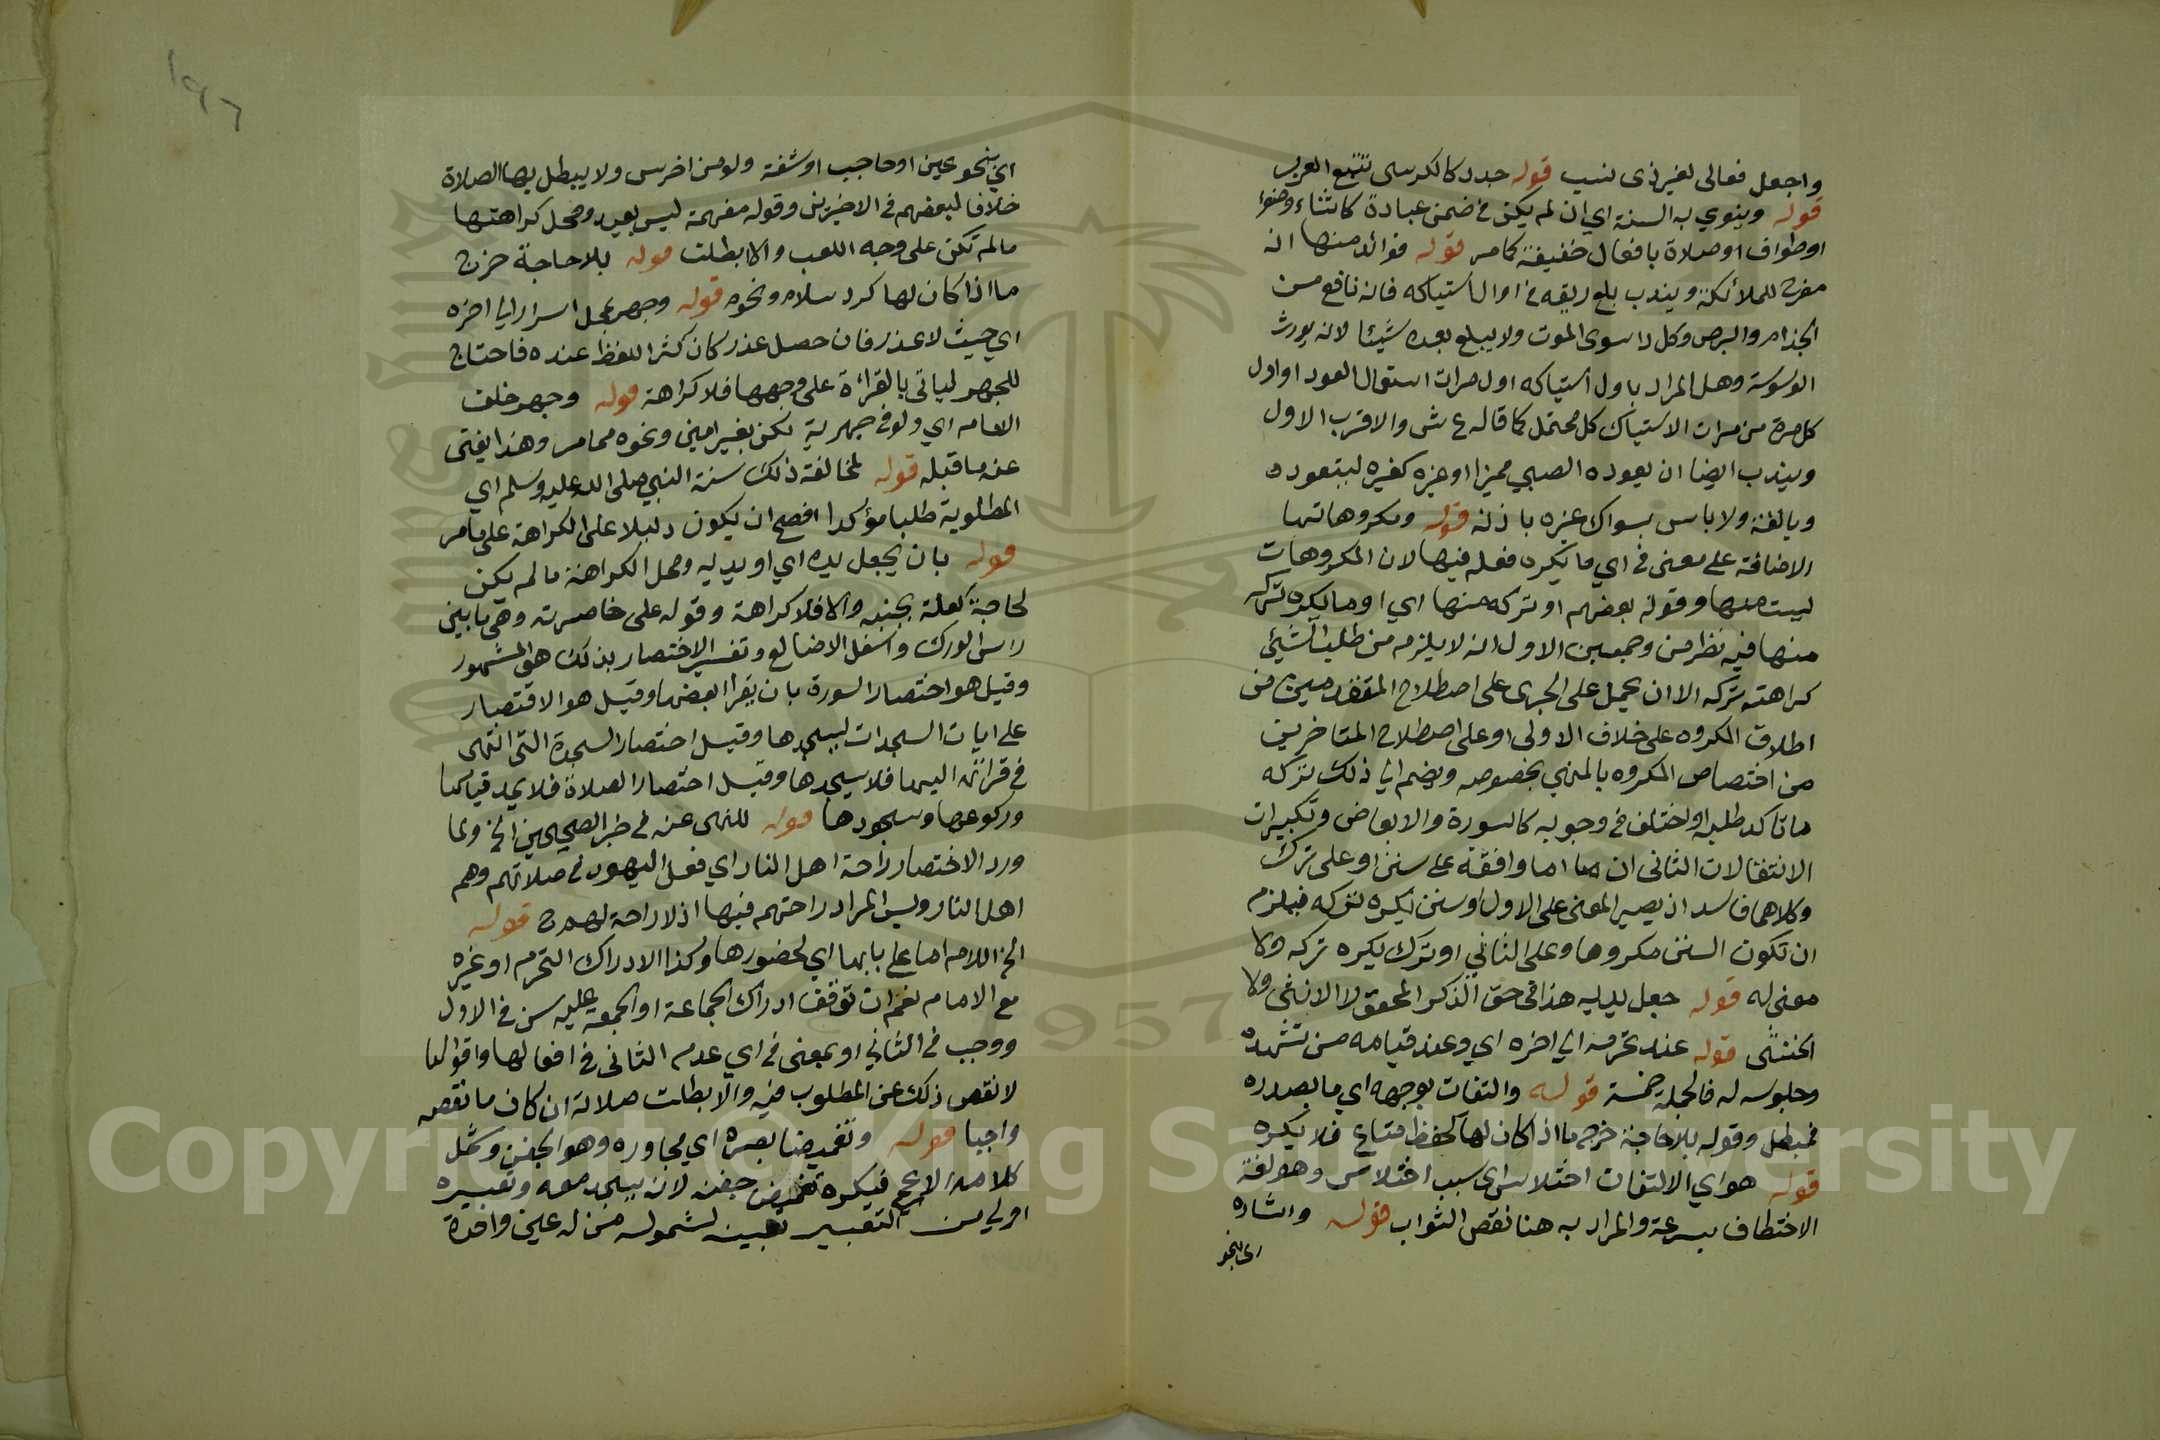 واجعل فعالى لغير ذى نسب قوله جدد كالكرسى تتبع العرب
قوله وينوي به السنة اي ان لم يكن في ضمن عبادة كاثناء وضوء
او طواف او صلاة بافعال خفيفة كما مر قوله فوائد منها انه
مفرح للملائكة ويندب بلع ريقه في اول استياكه فانه نافع من
الجذام والبرص وكل داء سوى الموت ولا يبلع بعده شيئا لانه يورث
الوسوسة وهل المراد باول استياكه اول مرات استعمال العود او اول
كل مرة من مرات الاستياك كل محتمل كما قاله ع ش والاقرب الاول
ويندب ايضا ان يعوده الصبي مميزا او غيره كغيره ليتعوده
ويالفه ولا باس بسواك غيره باذنه قوله ومكروهاتها
الاضافة على معنى في اي ما يكره فعله فيها لان المكروهات
ليست منها وقوله بعضهم او تركه منها اي او ما يكره تركه
منها فيه نظر من وجهين الاول انه لا يلزم من طلب الشيئ
كراهته تركه الا ان يحمل على الجرى على اصطلاح المتقدمين من
اطلاق المكروه على خلاف الاولى او على اصطلاح المتاخرين
من اختصاص المكروه بالمنهي بخصوصه ويضم الي ذلك تركه
ما تاكد طلبه او اختلف في وجوبه كالسورة والابعاض وتكبيرات
الانتقالات الثانى ان ما اما واقعة على سنن او على ترك
وكلاهما فاسد اذ يصير المعنى على الاول وسنن يكره تركه فيلزم
ان تكون السنن مكروها وعلى الثاني او ترك يكره تركه ولا
معنى له قوله جعل يديه هذا في حق الذكر المحقق لا الانثى ولا
الخنثى قوله عند تحرمه الى اخره اي وعند قيامه من تشهده
وجلوسه له فالجملة خمسة قوله والتفات بوجهه اي ما بصدره
فمبطل وقوله بلا حاجة خرج ما اذا كان لها كحفظ متاع فلا يكره
قوله هو اي الالتفات اختلاس اى سبب اختلاس وهو لغة
الاختطاف بسرعة والمراد به هنا نقص الثواب قوله واشاره
اى بنحو
١٩٦
اي بنحو عين او حاجب او شفة ولو من اخرس ولا يبطل بها الصلاة
خلافا لبعضهم في الاخيرين وقوله مفهمة ليس بعيد ومحل كراهتها
ما لم تكن على وجه اللعب والا بطلت قوله بلا حاجة خرج
ما اذا كان لها كرد سلام ونحوه قوله وجهر بمحل اسرار الى اخره
اي حيث لا عذر فان حصل عذر كان كثر اللغط عنده فاحتاج
للجهر لياتي بالقراءة على وجهها فلا كراهة قوله وجهر خلف
الامام اي ولو في جهرية لكن بغير امين ونحوه مما مر وهذا يغنى
عنه ما قبله قوله لمخالفة ذلك سنة النبي صلى الله عليه وسلم اي
المطلوبة طلبا مؤكدا فصح ان يكون دليلا على الكراهة على ما مر
قوله بان يجعل يده اي او يديه ومحل الكراهة ما لم يكن
لحاجة كعلة بجنبه والا فلا كراهة وقوله على خاصرته وهي ما بين
راس الورك واسفل الاضالع وتفسير الاختصار بذلك هو المشهور
وقيل هو اختصار السورة بان يقرا بعضها وقيل هو الاقتصار
على ايات السجدات ليسجدها وقيل اختصار السجدة التى انتهى
في قراءته اليها فلا يسجدها وقيل اختصار الصلاة فلا يمد قيامها
وركوعها وسجودها قوله للنهي عنه في خبر الصحيحين الخ ولما
ورد الاختصار راحة اهل النار اي فعل اليهود في صلاتهم وهم
اهل النار وليس المراد راحتهم فيها اذ لا راحة لهم قوله
الخ اللام اما على بابها اي لحضورها وكذا الادراك التحرم او غيره
مع الامام نعم ان توقف ادراك الجماعة او الجمعة عليه سن في الاول
ووجب في الثاني او بمعنى في اي عدم التانى في افعالها واقوالها
لانقص ذلك عن المطلوب فيه والا بطلت صلاته ان كان ما نقصه
واجبا قوله وتغميض بصره اي مجاوره وهو الجفن وشمل
كلامه الاعمى فيكره تغميض جفنه لانه يسجد معه وتعبيره
اولى من التعبير بعينه لشموله من له عين واحدة
Copyright © King Saud University
1957